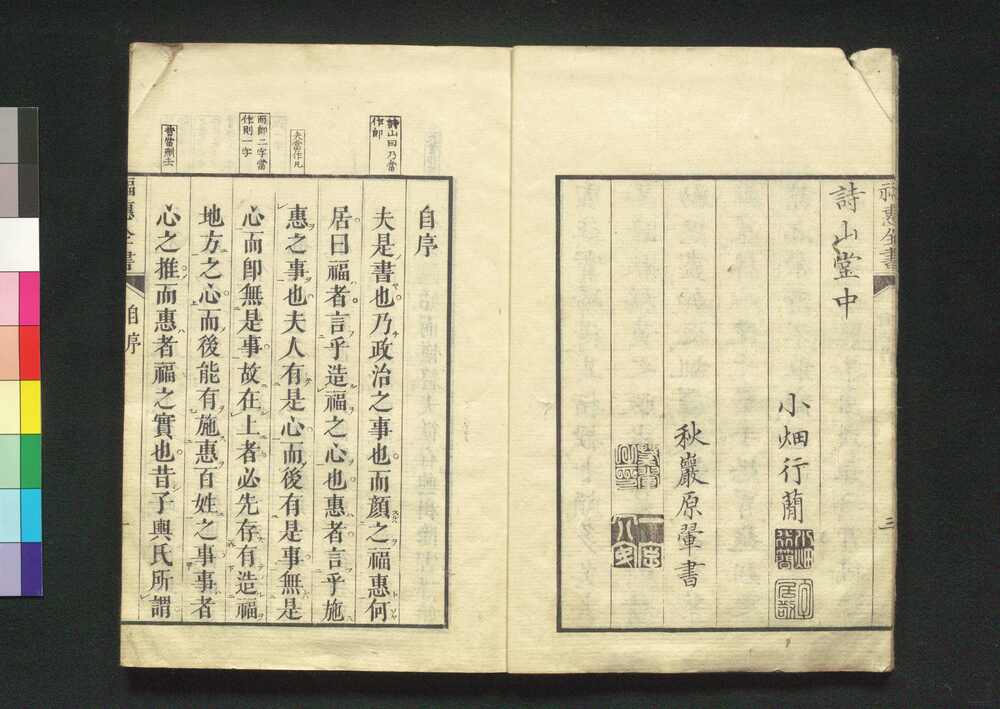 詩山堂中
小畑行蕑
秋巖原翬書
三
自序
詩山曰乃當
作即
夫是書也乃政治之事也而顏之福惠何
居曰福者言乎造福之心也惠者言乎施
夫當作凡
惠之事也夫人有是心而後有是事無是
而即二字當
作則一字
心而卽無是事故在上者必先存有造福
地方之心而後能有施惠百姓之事事者
心之推而惠者福之實也昔子輿氏所謂
福惠全書
自序